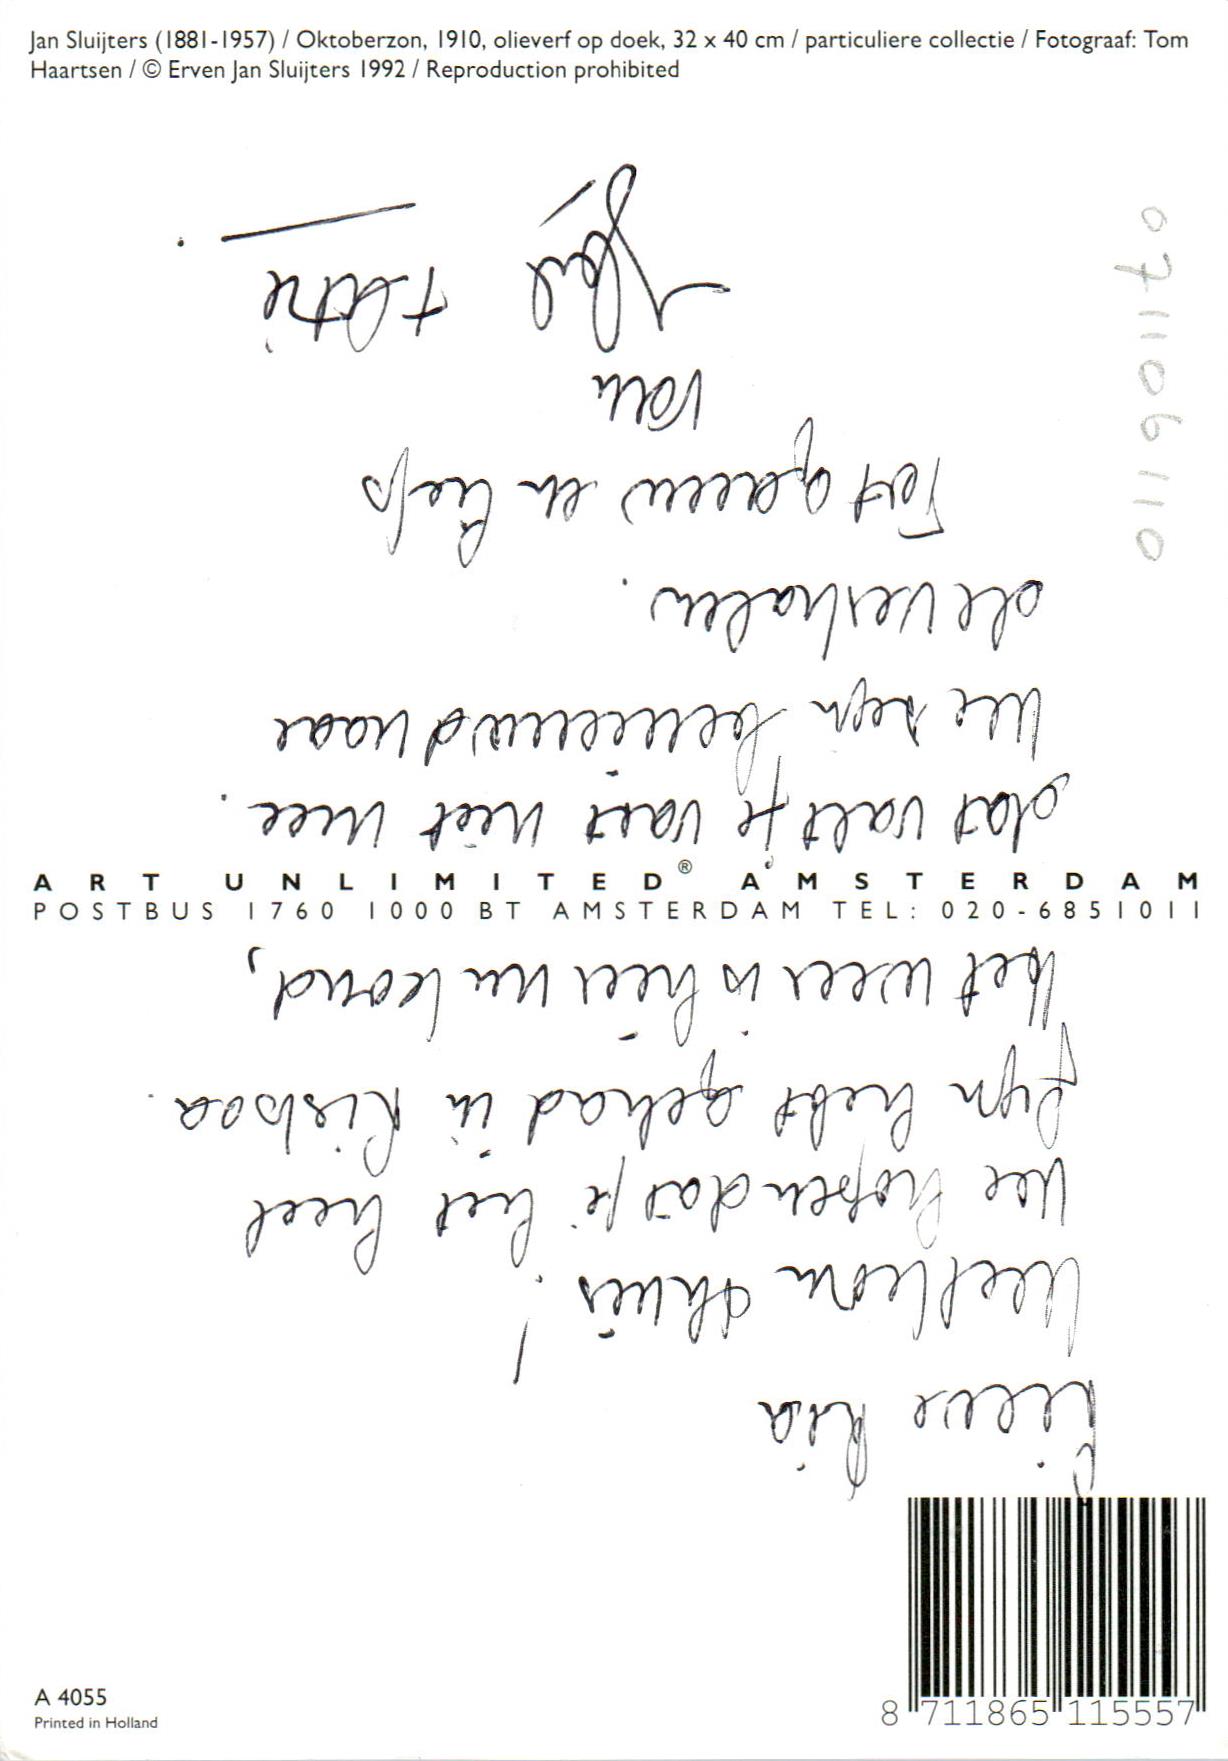 Jan Sluijters (1881-1957) / Oktoberzon, 1910, olieverf op doek, 32 x 40 cm / particuliere collectie / Fotograaf: Tom
Haartsen / © Erven Jan Sluijters 1992 / Reproduction prohibited
Lieve Ria
Welkom thuis!
We hopen dat je het heel
fijn hebt gehad in
Het weer is hier nu koud,
dat valt je vast niet mee.
We zijn benieuwd naar
de verhalen.
Tot gauw en liefs
van
+
071106110
ART UNLIMITED® AMSTERDAM
POSTBUS 1760 1000 BT AMSTERDAM TEL: 020-6851011
A 4055
Printed in Holland
8 711865 115557